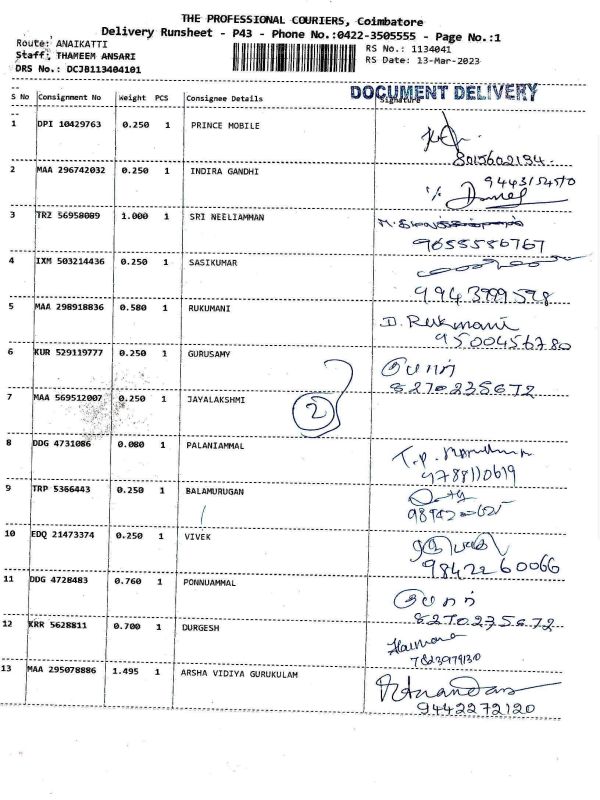 THE PROFESSIONAL COURIERS, Coimbatore
Delivery Runsheet - P43 - Phone No.:0422-3505555 - Page No.:1
Route: ANAIKATTI
Staff: THAMEEM ANSARI
DRS No.: DCJB113404101
RS No.: 1134041
RS Date: 13-Mar-2023
DOCUMENT DELIVERY
S No Consignment No Weight PCS Consignee Details Signature
1 DPI 10429763 0.250 1 PRINCE MOBILE
8015602194
2 MAA 296742032 0.250 1 INDIRA GANDHI
3 TRZ 56958089 1.000 1 SRI NEELIAMMAN
9655586767
4 IXM 503214436 0.250 1 SASIKUMAR
9943999598
5 MAA 298918836 0.580 1 RUKUMANI
D. Rukmani
9500456780
6 KUR 529119777 0.250 1 GURUSAMY
8270235672
7 MAA 569512007 0.250 1 JAYALAKSHMI
2
8 DDG 4731086 0.080 1 PALANIAMMAL
9788110619
9 TRP 5366443 0.250 1 BALAMURUGAN
10 EDQ 21473374 0.250 1 VIVEK
9842260066
11 DDG 4728483 0.760 1 PONNUAMMAL
8270235672
12 KRR 5628811 0.700 1 DURGESH
13 MAA 295078886 1.495 1 ARSHA VIDIYA GURUKULAM
9442272120